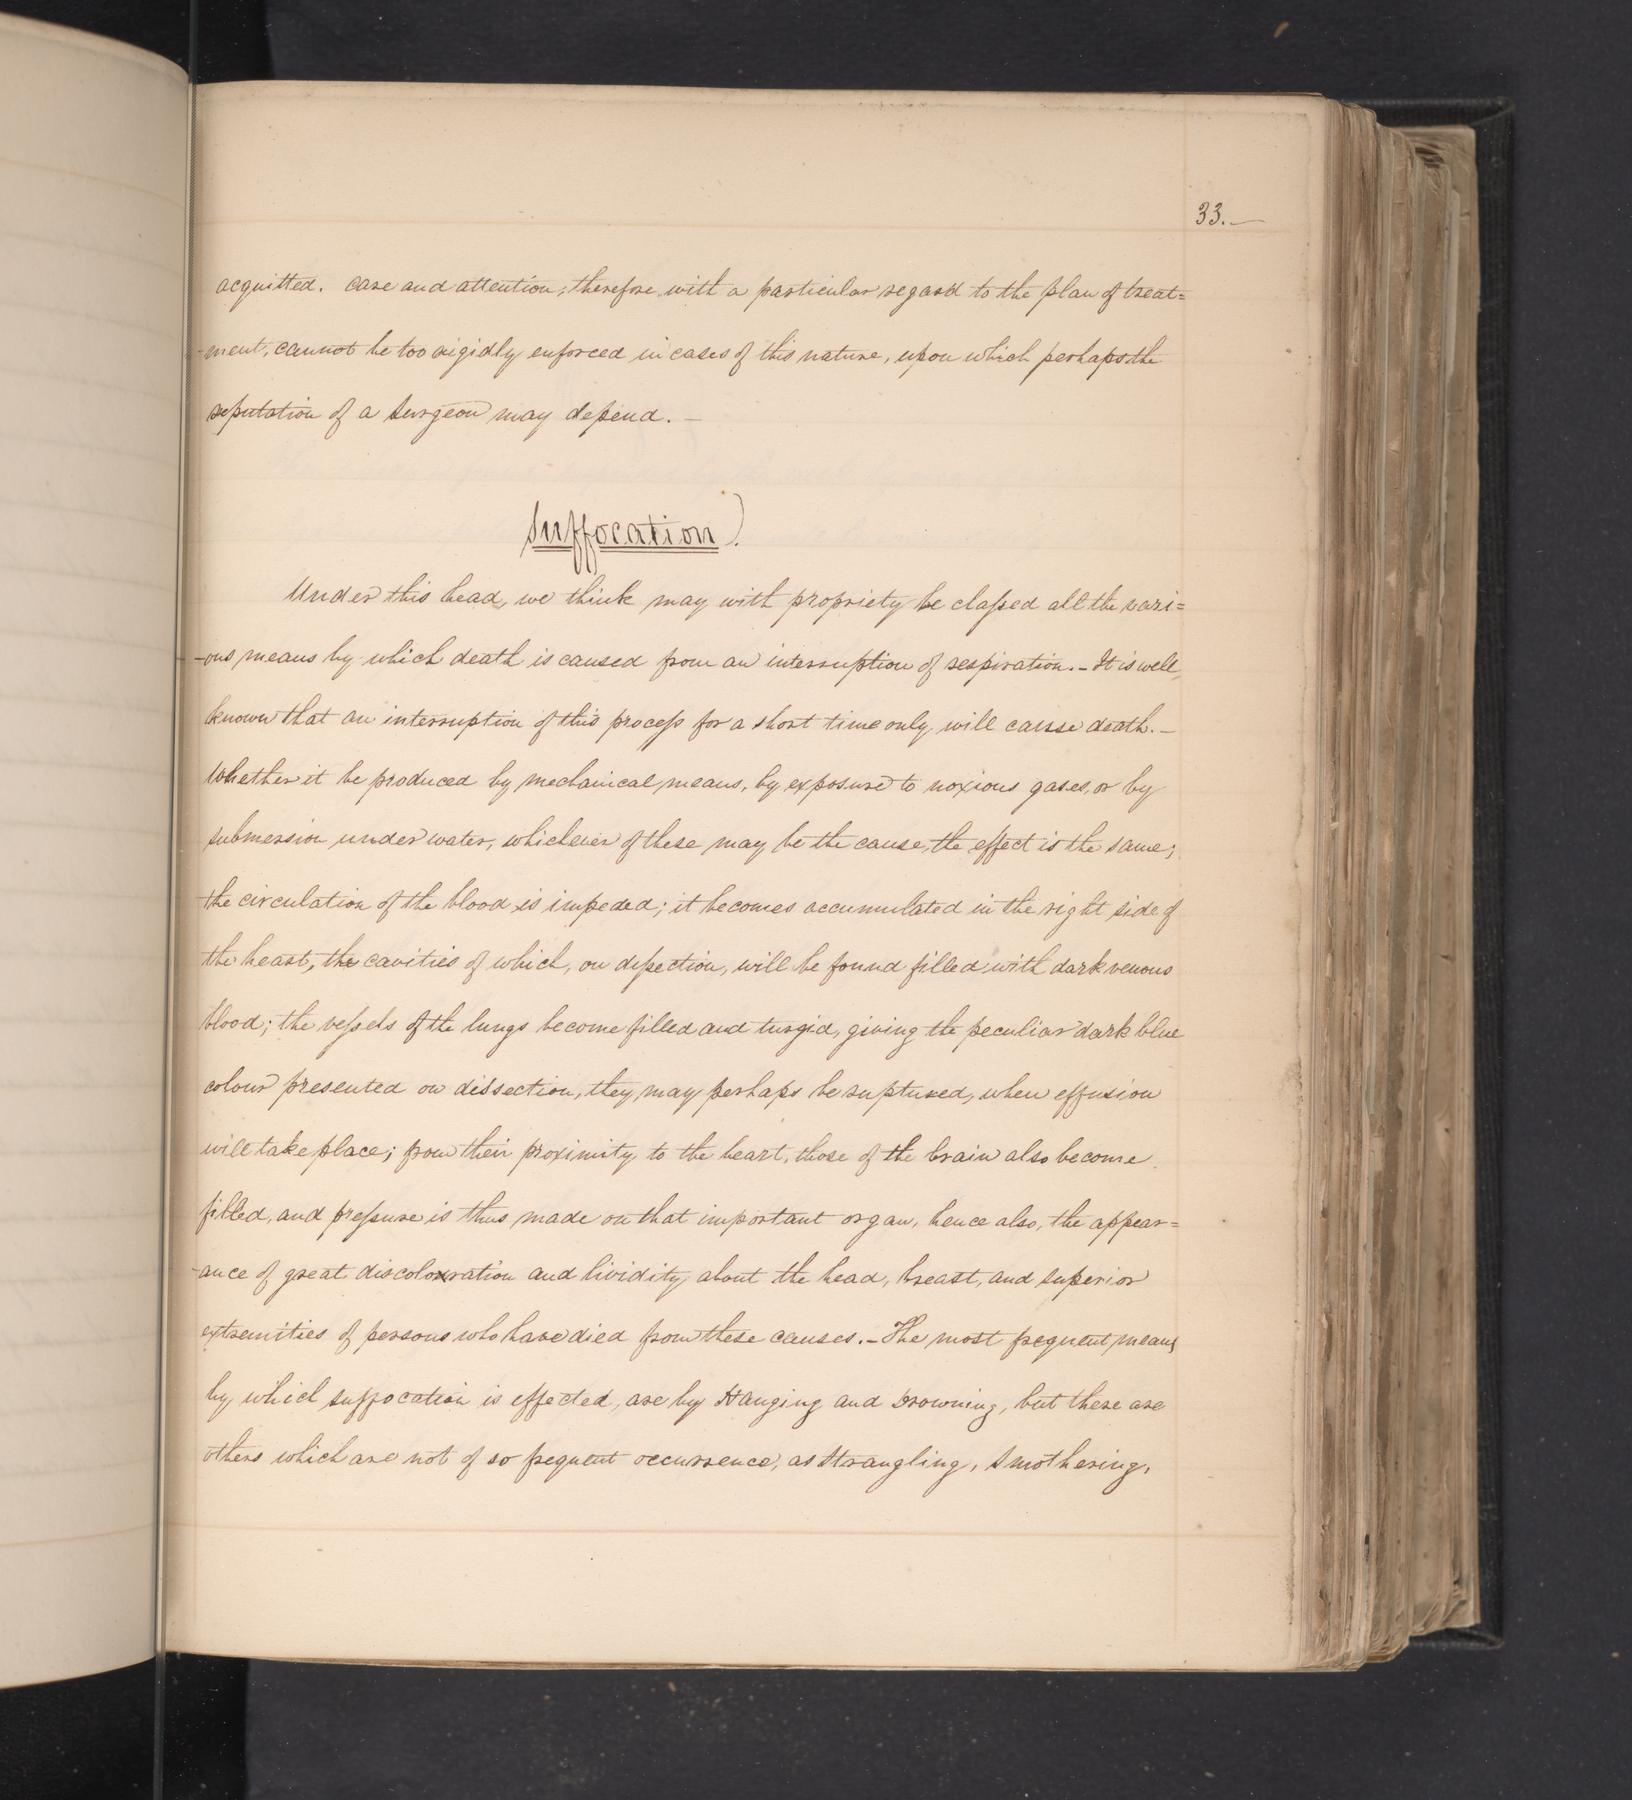 33.—
acquitted. care and attention, therefore with a particular regard to the plan of treat=
-ment, cannot be too rigidly enforced in cases of this nature, upon which perhaps the
reputation of a surgeon may depend. —
Suffocation.
Under this head, we think may with propriety be classed all the vari=
-ous means by which death is caused from an interruption of respiration. – It is well
known that an interruption of this process for a short time only, will cause death. –
Whether it be produced by mechanical means, by exposure to noxious gases, or by
submersion under water, whichever of these may be the cause, the effect is the same;
the circulation of the blood is impeded; it becomes accumulated in the right side of
the heart, the cavities of which, on dissection, will be found filled with dark venous
blood; the vessels of the lungs become filled and turgid, giving the peculiar dark blue
colour presented on dissection, they may perhaps be ruptured, when effusion
will take place; from their proximity to the heart, those of the brain also become
filled, and pressure is thus made on that important organ, hence also, the appear=
-ance of great discolouration and lividity about the head, breast, and superior
extremities of persons who have died from these causes. – The most frequent means
by which suffocation is effected, are by Hanging and Drowning, but there are
others which are not of so frequent occurrence, as Strangling, Smothering,